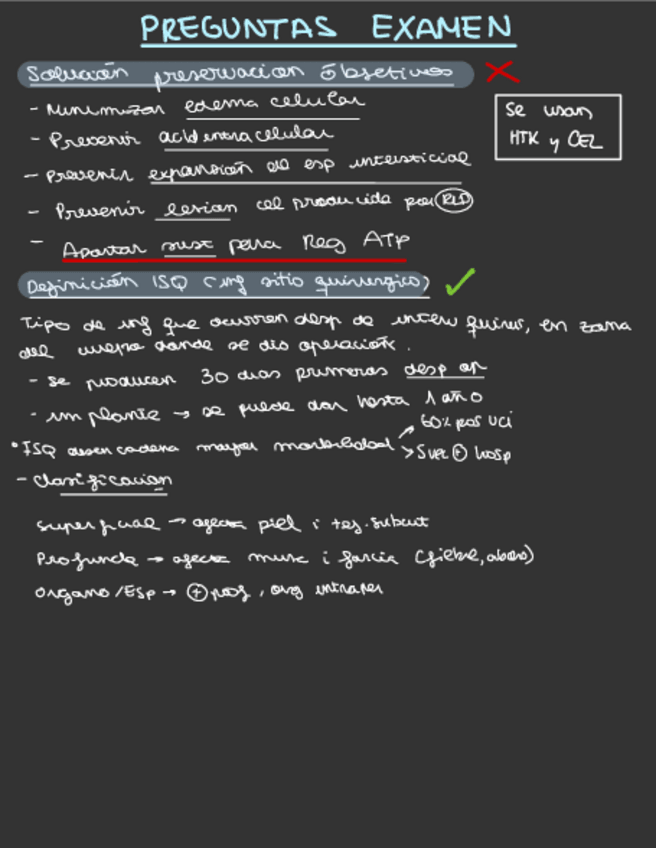 PREGUNTAS EXAMEN
Solución preservacion Objetivos
- Minimizar edema celular
Se usan
HTK y CEL
- Prevenir acid intracelular
- Prevenir expansión del esp intersticial
- Prevenir lesion cel producida por RLO
- Aportar sust para Reg ATP
Definición ISQ (inf sitio quirurgico)
Tipo de inf que ocurren desp de interv quirur, en zona
del cuerpo donde se dio operación.
- se producen 30 dias primeros desp op
- implante → se puede dar hasta 1 año
• ISQ desencadena mayor morbilidad
60% pos UCI
5 vec + hosp
- Clasificacion
superficial → afecta piel i tej. subcut
Profunda → afecta musc i fascia (fiebre, abces)
Organo/Esp → + prof, org intraper